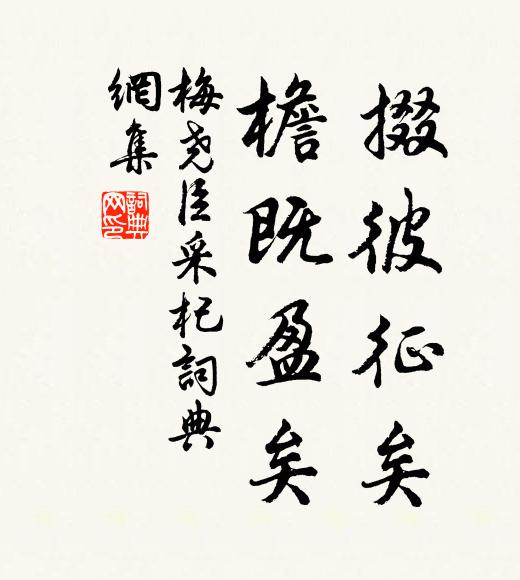 掇彼征矣
檐既盈矣
梅尧臣采杞詞典
網集
詞典
网印